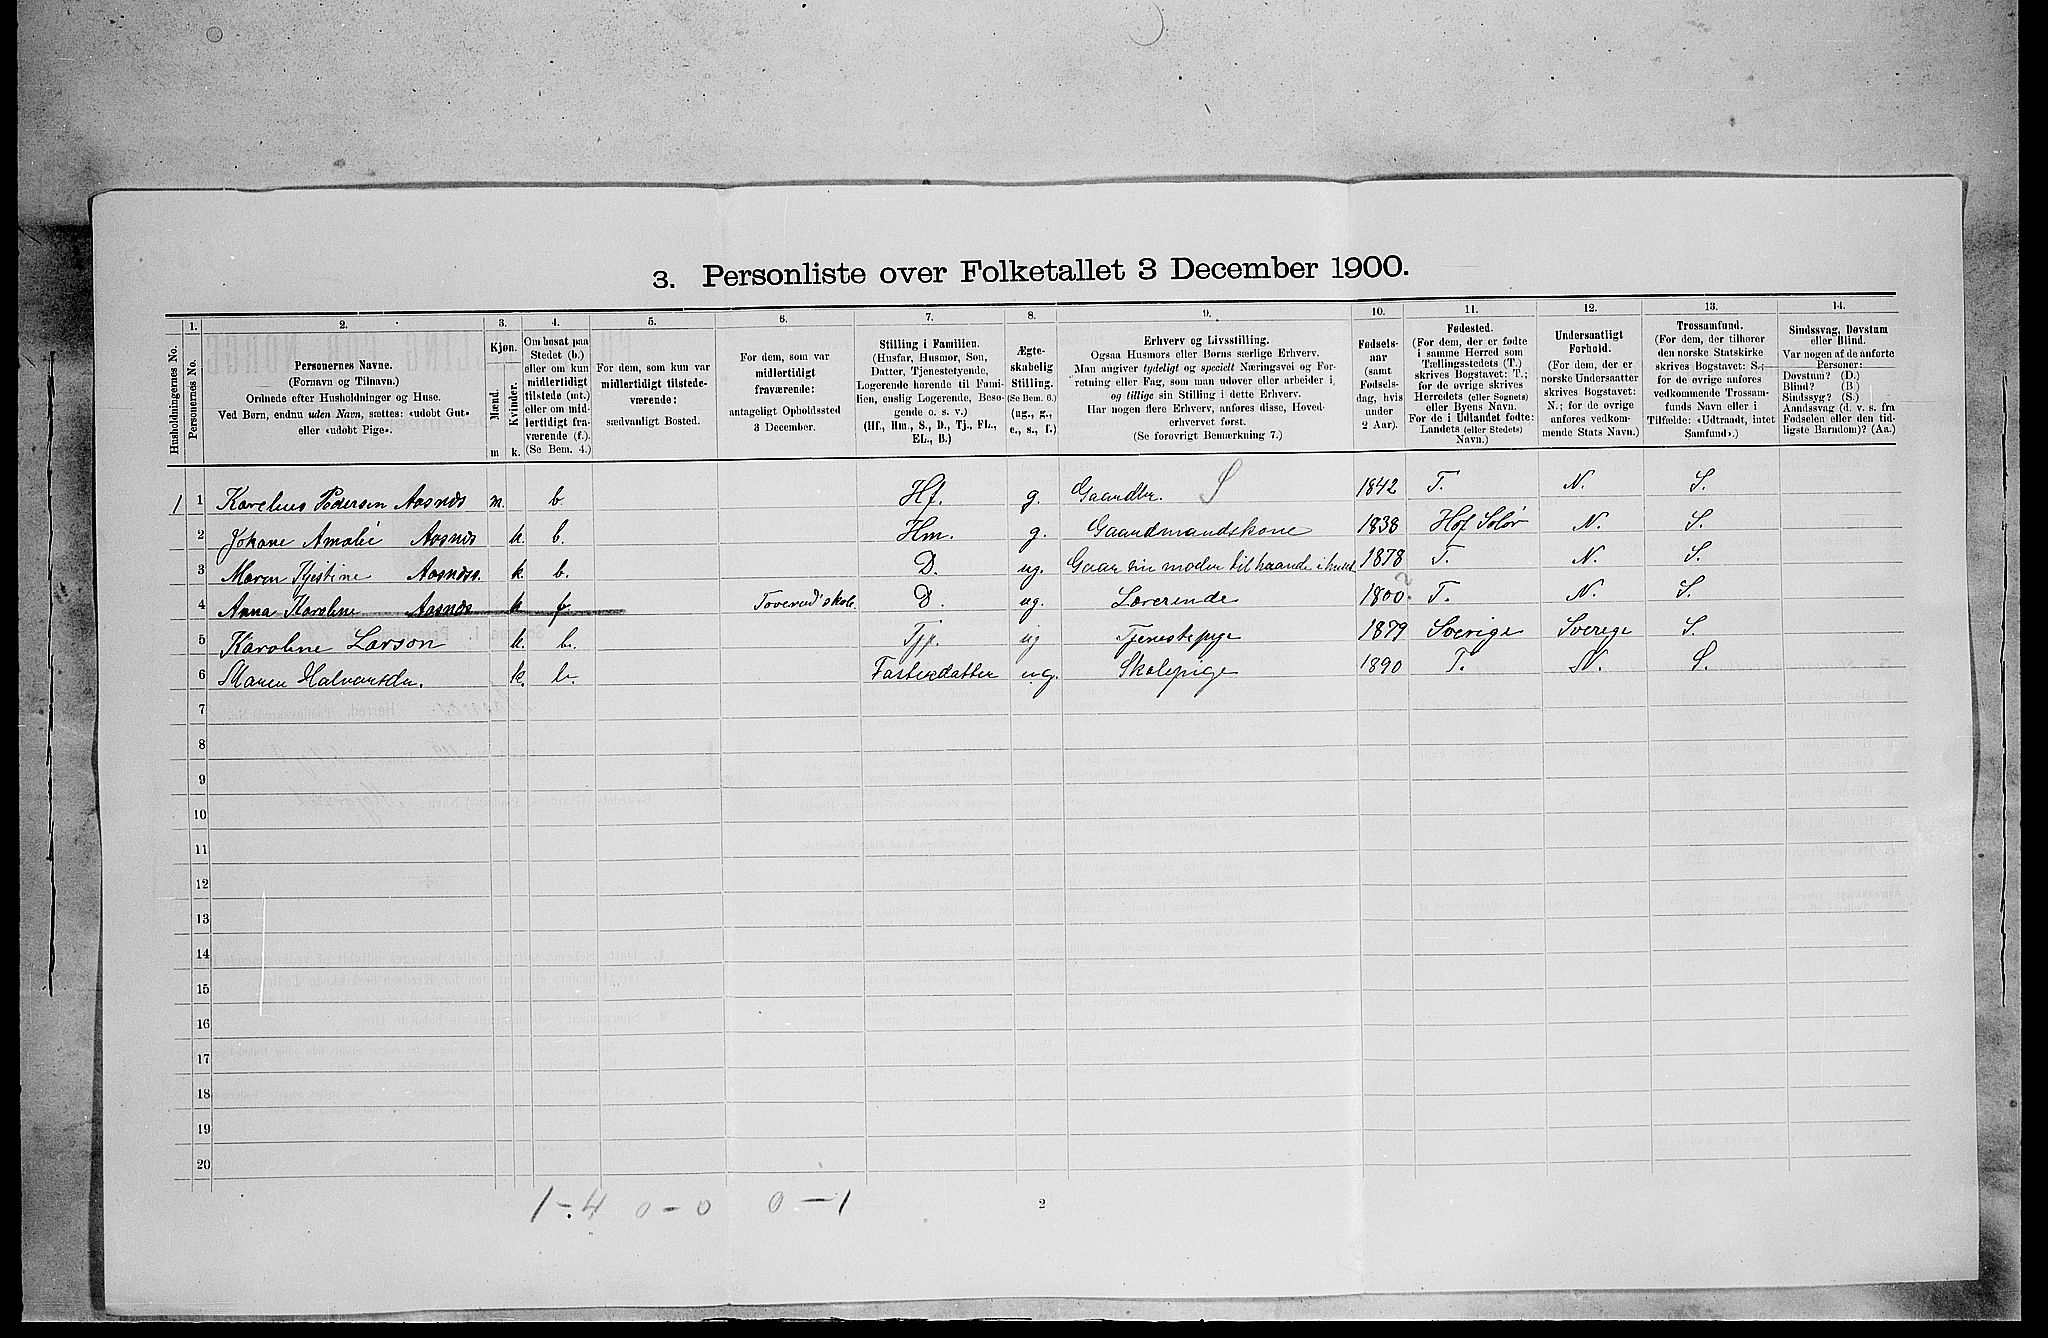 3. Personliste over Folketallet 3 December 1900.
1. 2. 3. 4. 5. 6. 7. 8. 9. 10. 11. 12. 13. 14.
Husholdningernes No.
Personernes No.
Personernes Navne.
(Fornavn og Tilnavn.)
Ordnede efter Husholdninger og Huse.
Ved Børn, endnu uden Navn, sættes: «udobt Gut»
eller «udobt Pige».
Kjøn.
Mænd.
Kvinder.
m k.
Om bosat paa
Stedet (b.)
eller om kun
midlertidigt
tilstede (mt.)
eller om mid-
lertidigt fra-
værende (f.).
(Se Bem. 4.)
For dem, som kun var
midlertidigt tilstede-
værende:
sædvanligt Bosted.
For dem, som var
midlertidigt
fraværende:
antageligt Opholdssted
3 December.
Stilling i Familien.
(Husfar, Husmor, Søn,
Datter, Tjenestetyende,
Logerende hørende til Fami-
lien, enslig Logerende, Besø-
gende o. s. v.)
(Hf., Hm., S., D., Tj., FL.,
EL., B.)
Ægte-
skabelig
Stilling.
(Se Bem. 6.)
(ug., g.,
e., s., f.)
Erhverv og Livsstilling.
Ogsaa Husmors eller Børns særlige Erhverv.
Man angiver tydeligt og specielt Næringsvei og For-
retning eller Fag, som man udover eller arbeider i,
og tillige sin Stilling i dette Erhverv.
Har nogen flere Erhverv, anføres disse, Hoved-
erhvervet først.
(Se forøvrigt Bemærkning 7.)
Fødsels-
aar
(samt
Fødsels-
dag, hvis
under
2 Aar).
Fødested.
(For dem, der er fødte
i samme Herred som
Tællingsstedets (T.)
skrives Bogstavet: T.;
for de øvrige skrives
Herredets (eller Sognets)
eller Byens Navn.
For de i Udlandet fødte:
Landets (eller Stedets)
Navn.)
Undersaatligt
Forhold.
(For dem, der er
norske Undersaatter
skrives Bogstavet:
N.; for de øvrige
anføres vedkom-
mende Stats Navn.)
Trossamfund.
(For dem, der tilhører
den norske Statskirke
skrives Bogstavet: S.;
for de øvrige anføres
vedkommende Trossam-
funds Navn eller i
Tilfælde: «Udtraadt, intet
Samfund».)
Sindssvag, Døvstum
eller Blind.
Var nogen af de anførte
Personer:
Døvstum? (D.)
Blind? (B.)
Sindssyg? (S.)
Aandssvag (d. v. s. fra
Fødselen eller den tid-
ligste Barndom)? (Aa.)
1 1 Karelius Pedersen Aasnæs m. b. Hf. g. Gaardbr. S 1842 T. N. S.
2 Johane Amalie Aasnæs k. b. Hm. g. Gaardmandskone 1838 Hof Solør N. S.
3 Maren Kjestine Aasnæs. k. b. D. ug. Gaar sin moder til haande i huset 1878 T. N. S.
4 Anna Karoline Aasnæs k f Toverud skole. D. ug. Lærerinde 1800 2 T. N. S.
5 Karoline Larson k. b. Tjp. ug Tjenestepige 1879 Sverige Sverige S.
6 Maren Halvorsdr. k. b. Fosterdatter ug. Skolepige 1890 T. N. S.
7
8
9
10
11
12
13
14
15
16
17
18
19
20
1-4 0-0 0-1 2